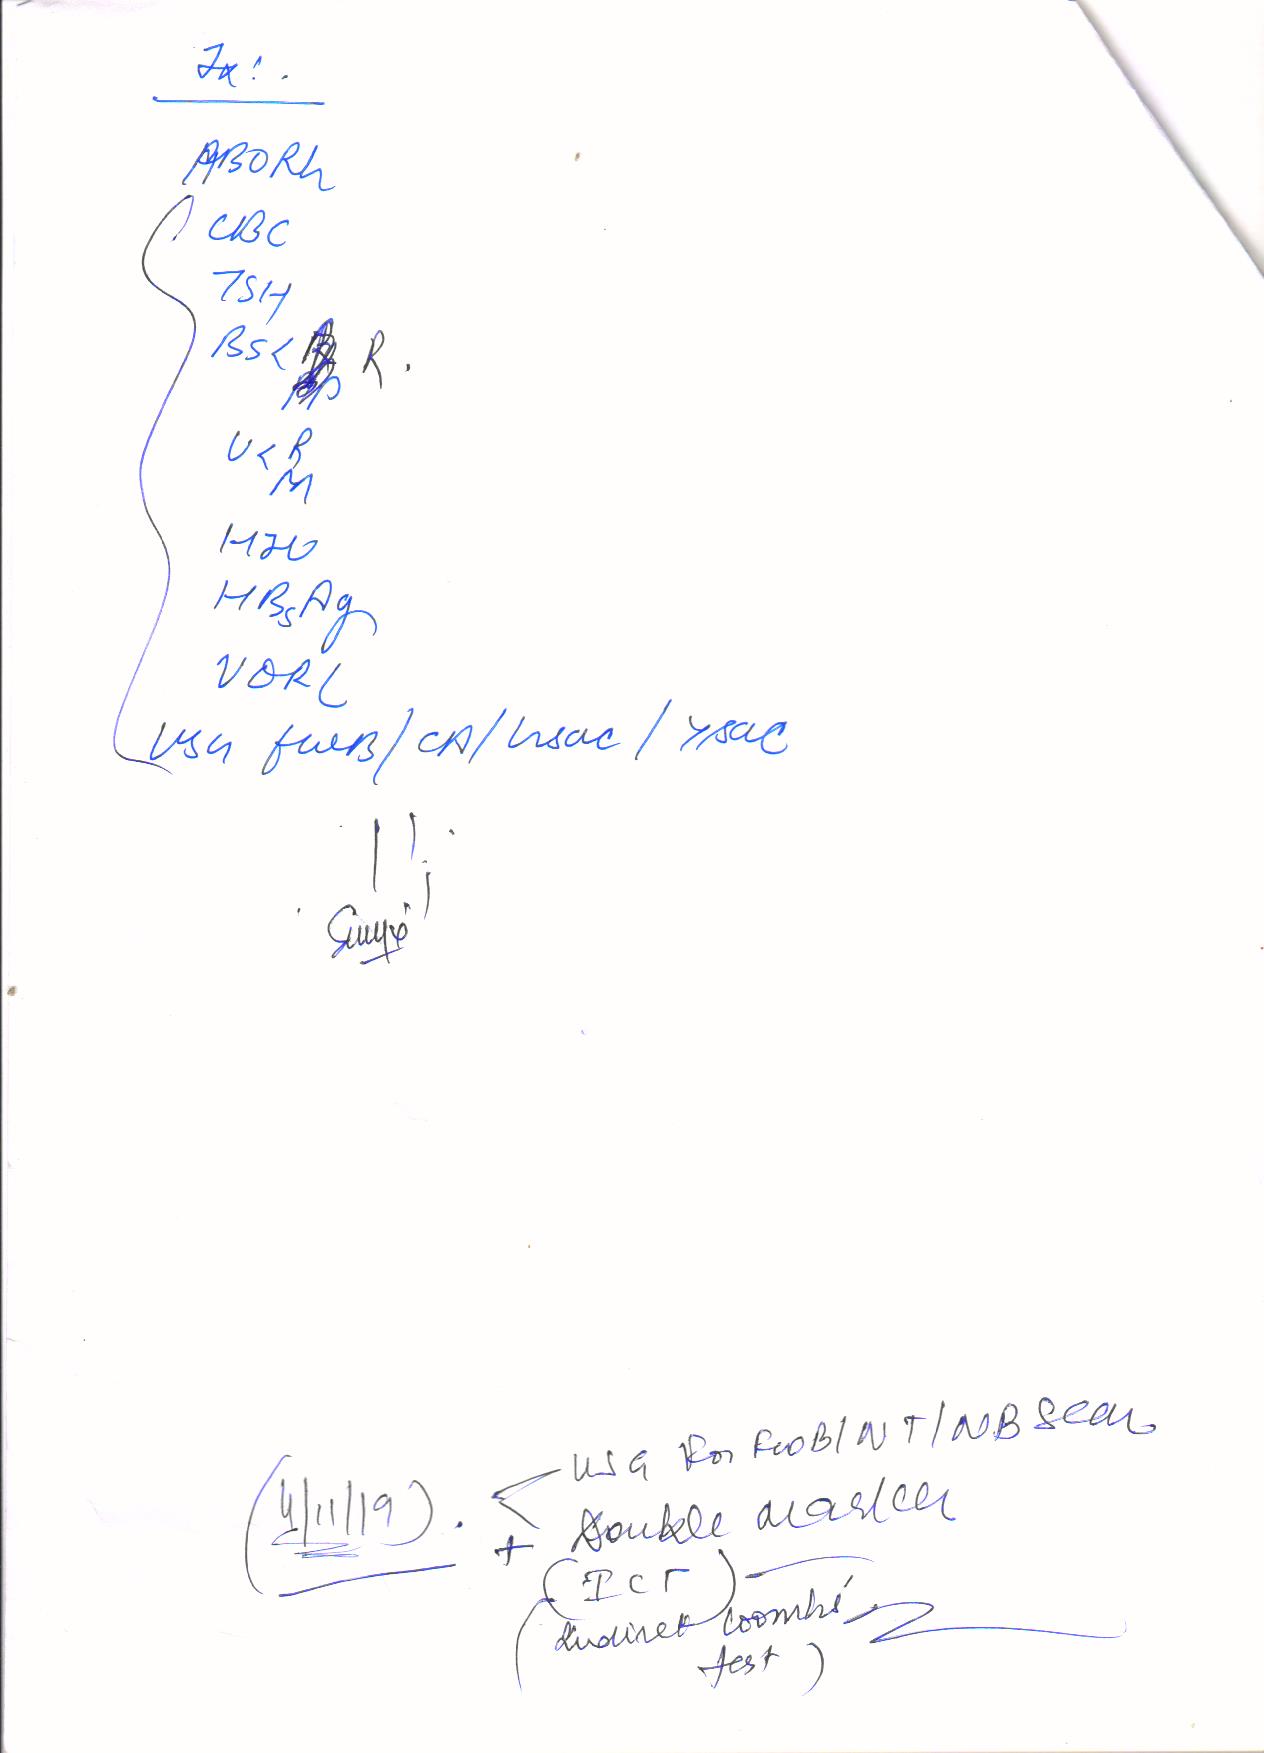 Ix:.
ABORh
CBC
TSH
BS < R.
PP
U < R
M
HIV
HBsAg
VDRL
USG fWB/CA/GSAC/YSAC
(4/11/19). < USG For FWB/NT/NB Scan
+ Double marker
(ICT)
(Indirect Coombs'
test)